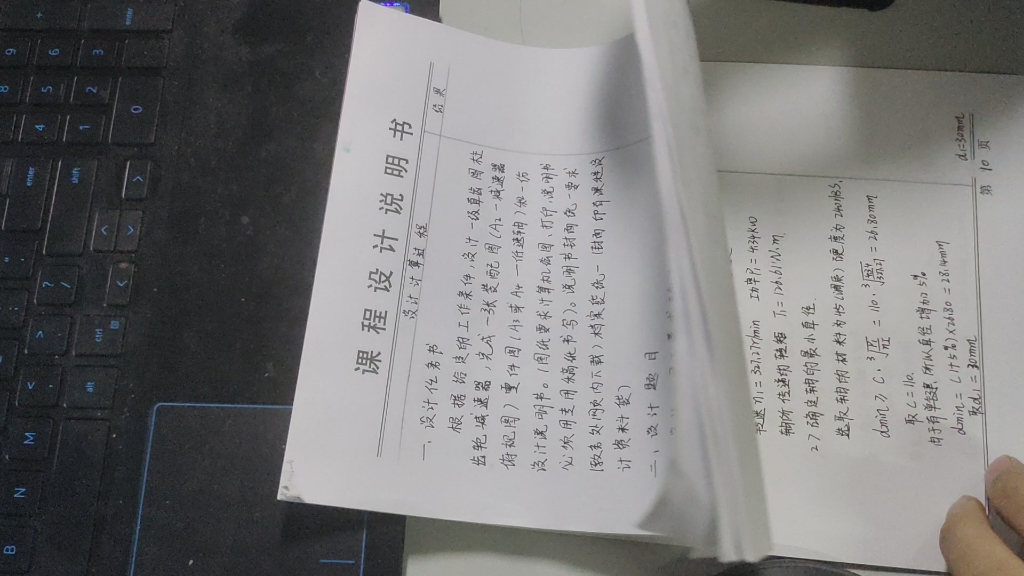 课程设计说明书
设计计算过程
结果
一、设计任务书
根据给定的工作条件，设计一级直齿圆柱
齿轮减速器，完成一张装配图（A2一减速器
俯视图）零件图（A3或A4一低速轴）和一份
设计说明书。（图纸要求计算机编图、打印，说明书
必须用专用稿纸书写）。说明书封面统一要求
（教务处网页内下载）档案袋统一（封面印有课程设
计资料袋）
二、设计题目
转速n1=321.27r/min 功率P1=4.34kW
轴所传递的转矩 T1=126.61N·m.
2）确定轴的最小直径.
选取轴的材料为45（调质）硬度为240HBS,
取C=110.
由于有单键槽 所以轴径增加5%
dmin=（1+5%）×26.80=28.14mm
取d1=30mm
d1=30mm
第 10 页
enter
shift
ctrl
alt
enter
9
6
3
8
5
2
4
1
0
M
N
B